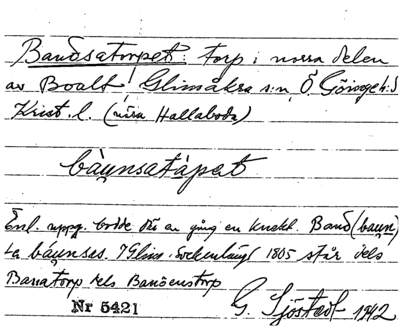 Bandsatorpet: torp i norra delen
av Boalt! Glimåkra s:n, Ö Göinge h:d
Krist. l. (nära Hallaboda)
bàunsatåpat
Enl. uppg. bodde där en gång en knekt Band (baun)
båunsas. Glim. sockenlängd 1805 står dels
Banatorp dels
Nr 5421
G. Sjöstedt 1942